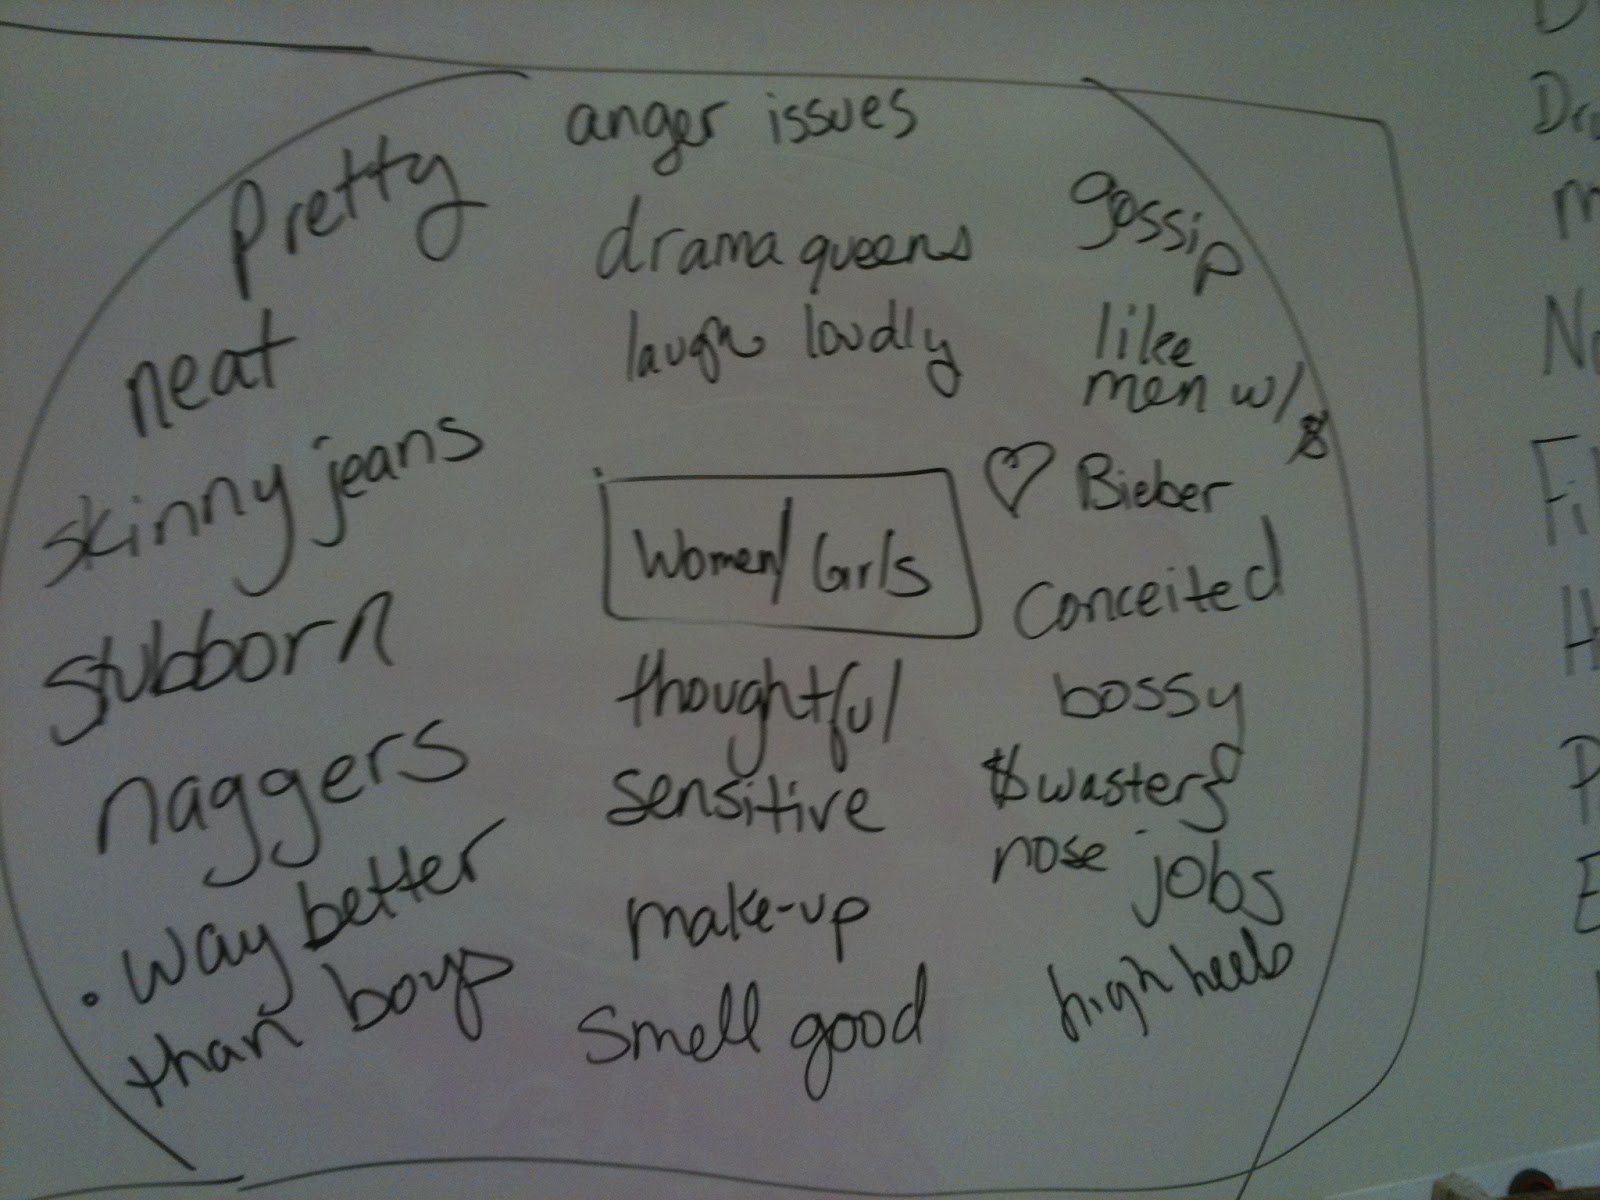 anger issues
pretty
drama queens
gossip
neat
laugh loudly
like
men w/
$
skinny jeans
♡ Bieber
Women/Girls
conceited
stubborn
thoughtful
bossy
naggers
sensitive
$ wasters
nose jobs
• way better
than boys
make-up
high heels
smell good